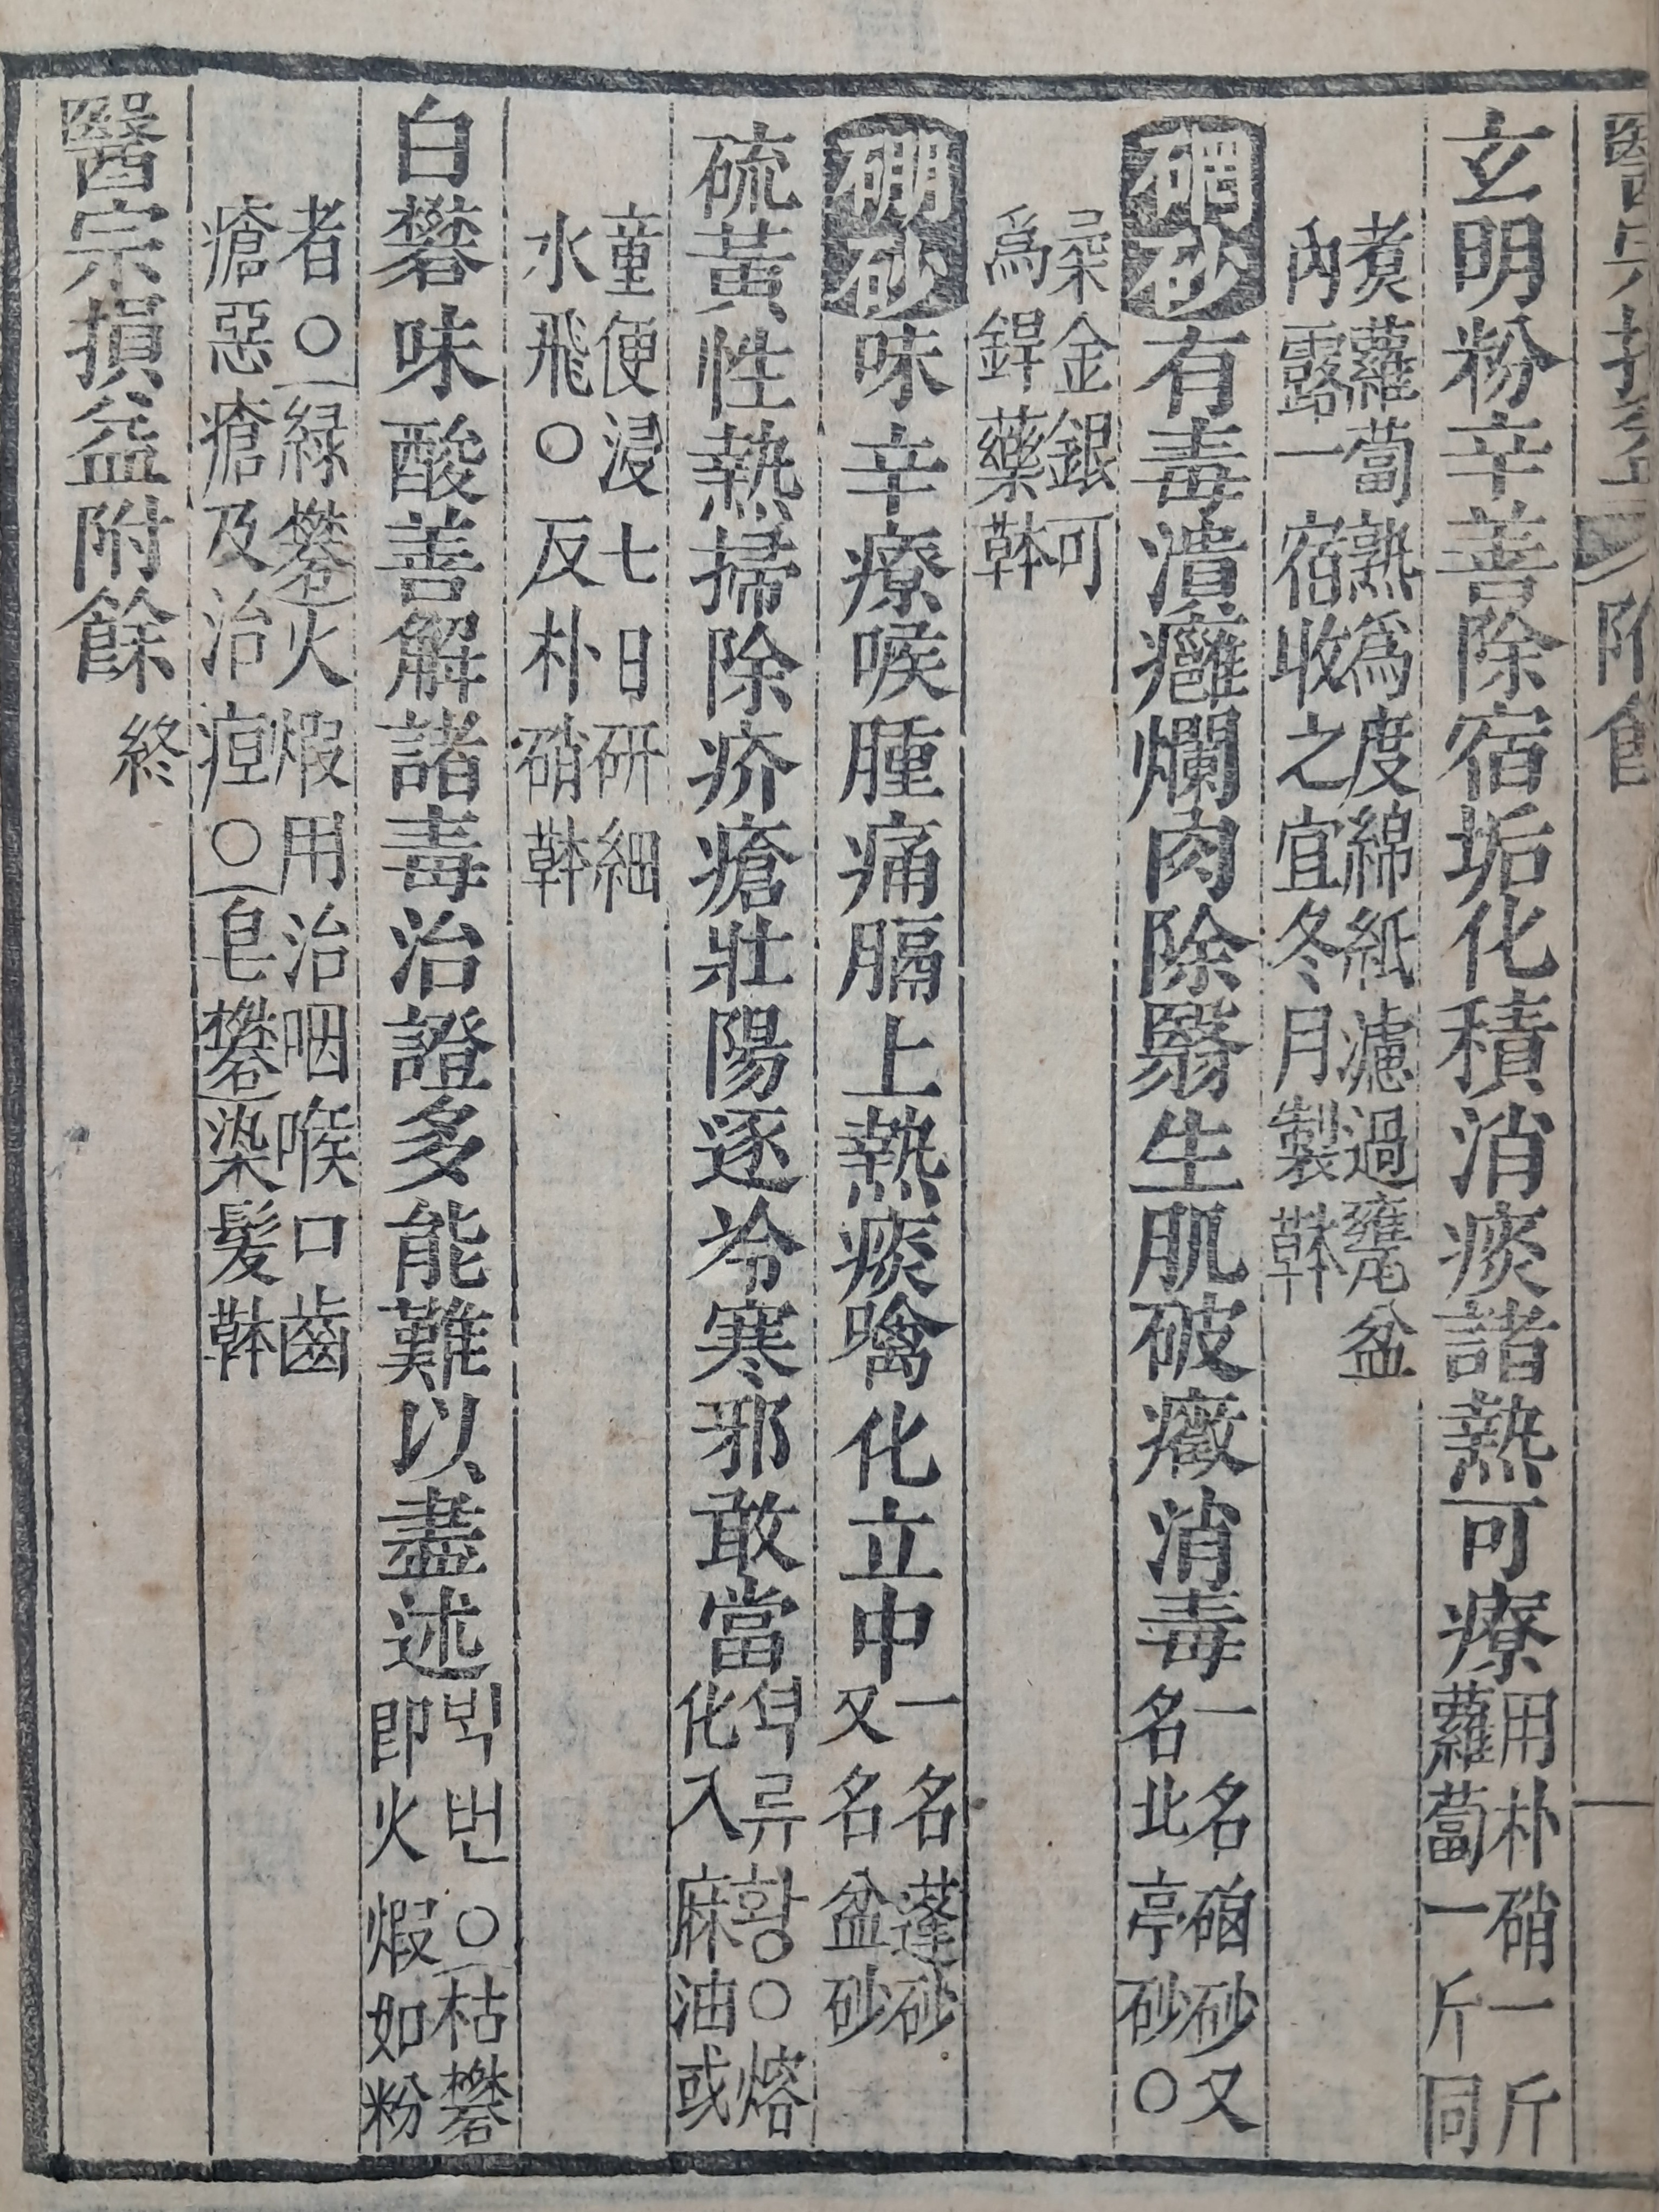 醫宗損益 附餘
玄明粉辛善除宿垢化積消痰諸熱可療
用朴硝一斤
蘿蔔一斤同
煮蘿蔔熟爲度綿紙濾過甕盆
內露一宿收之宜冬月製本草
碙砂有毒潰癰爛肉除翳生肌破癥消毒
一名硇砂又
名北亭砂○
柔金銀可
爲銲藥本草
硼砂味辛療喉腫痛膈上熱痰噙化立中
一名蓬砂
又名盆砂
硫黃性熱掃除疥瘡壯陽逐冷寒邪敢當
셕류황○熔
化入麻油或
童便浸七日研細
水飛○反朴硝本草
白礬味酸善解諸毒治證多能難以盡述
ᄇᆡᆨ번○枯礬
即火煆如粉
者○綠礬火煆用治咽喉口齒
瘡惡瘡及治疸○皂礬染髮本草
醫宗損益附餘終